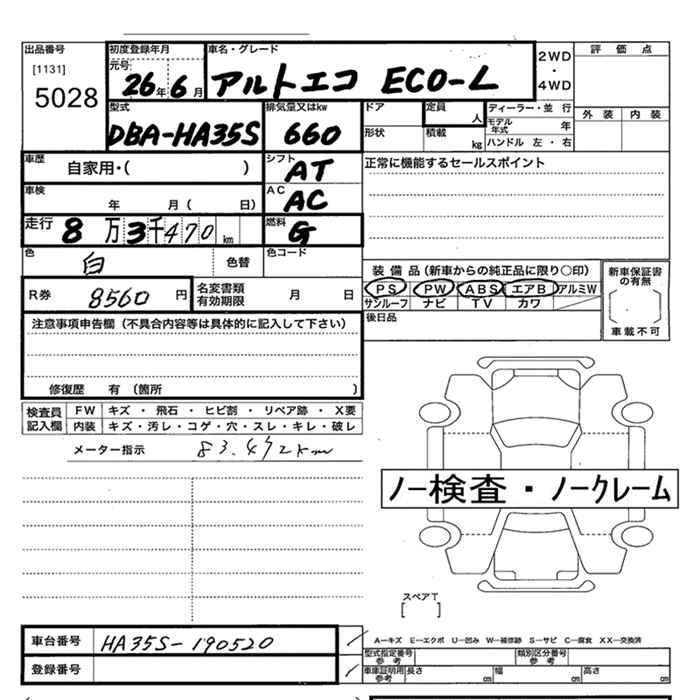 出品番号 初度登録年月 車名・グレード 2WD ・ 4WD 評価点
[1131] 元号
5028 26年 6月 アルトエコ ECO-L
型式 排気量又はkw ドア 定員 人 ディーラー・並行 外装 内装
DBA-HA35S 660 形状 積載 kg モデル年式 年
ハンドル 左・右
車歴 自家用・( ) シフト AT 正常に機能するセールスポイント
車検 年 月( 日) AC AC
走行 8万3千470km 燃料 G
色 白 色替 色コード
装備品(新車からの純正品に限り○印) 新車保証書の有無
R券 8560円 名変書類有効期限 月 日 PS PW ABS エアB アルミW
サンルーフ ナビ TV カワ
[ ]
車載不可
注意事項申告欄(不具合内容等は具体的に記入して下さい) 後日品
修復歴 有(箇所 )
検査員記入欄 FW キズ・飛石・ヒビ割・リペア跡・X要
内装 キズ・汚レ・コゲ・穴・スレ・キレ・破レ
メーター指示 83.472km
ノー検査・ノークレーム
スペアT
[ ]
車台番号 HA35S-190520 A―キズ E―エクボ U―凹み W―補修跡 S―サビ C―腐食 XX―交換済
型式指定番号 参考 類別区分番号 参考
登録番号 車庫証明用 参考 長さ cm 幅 cm 高さ cm